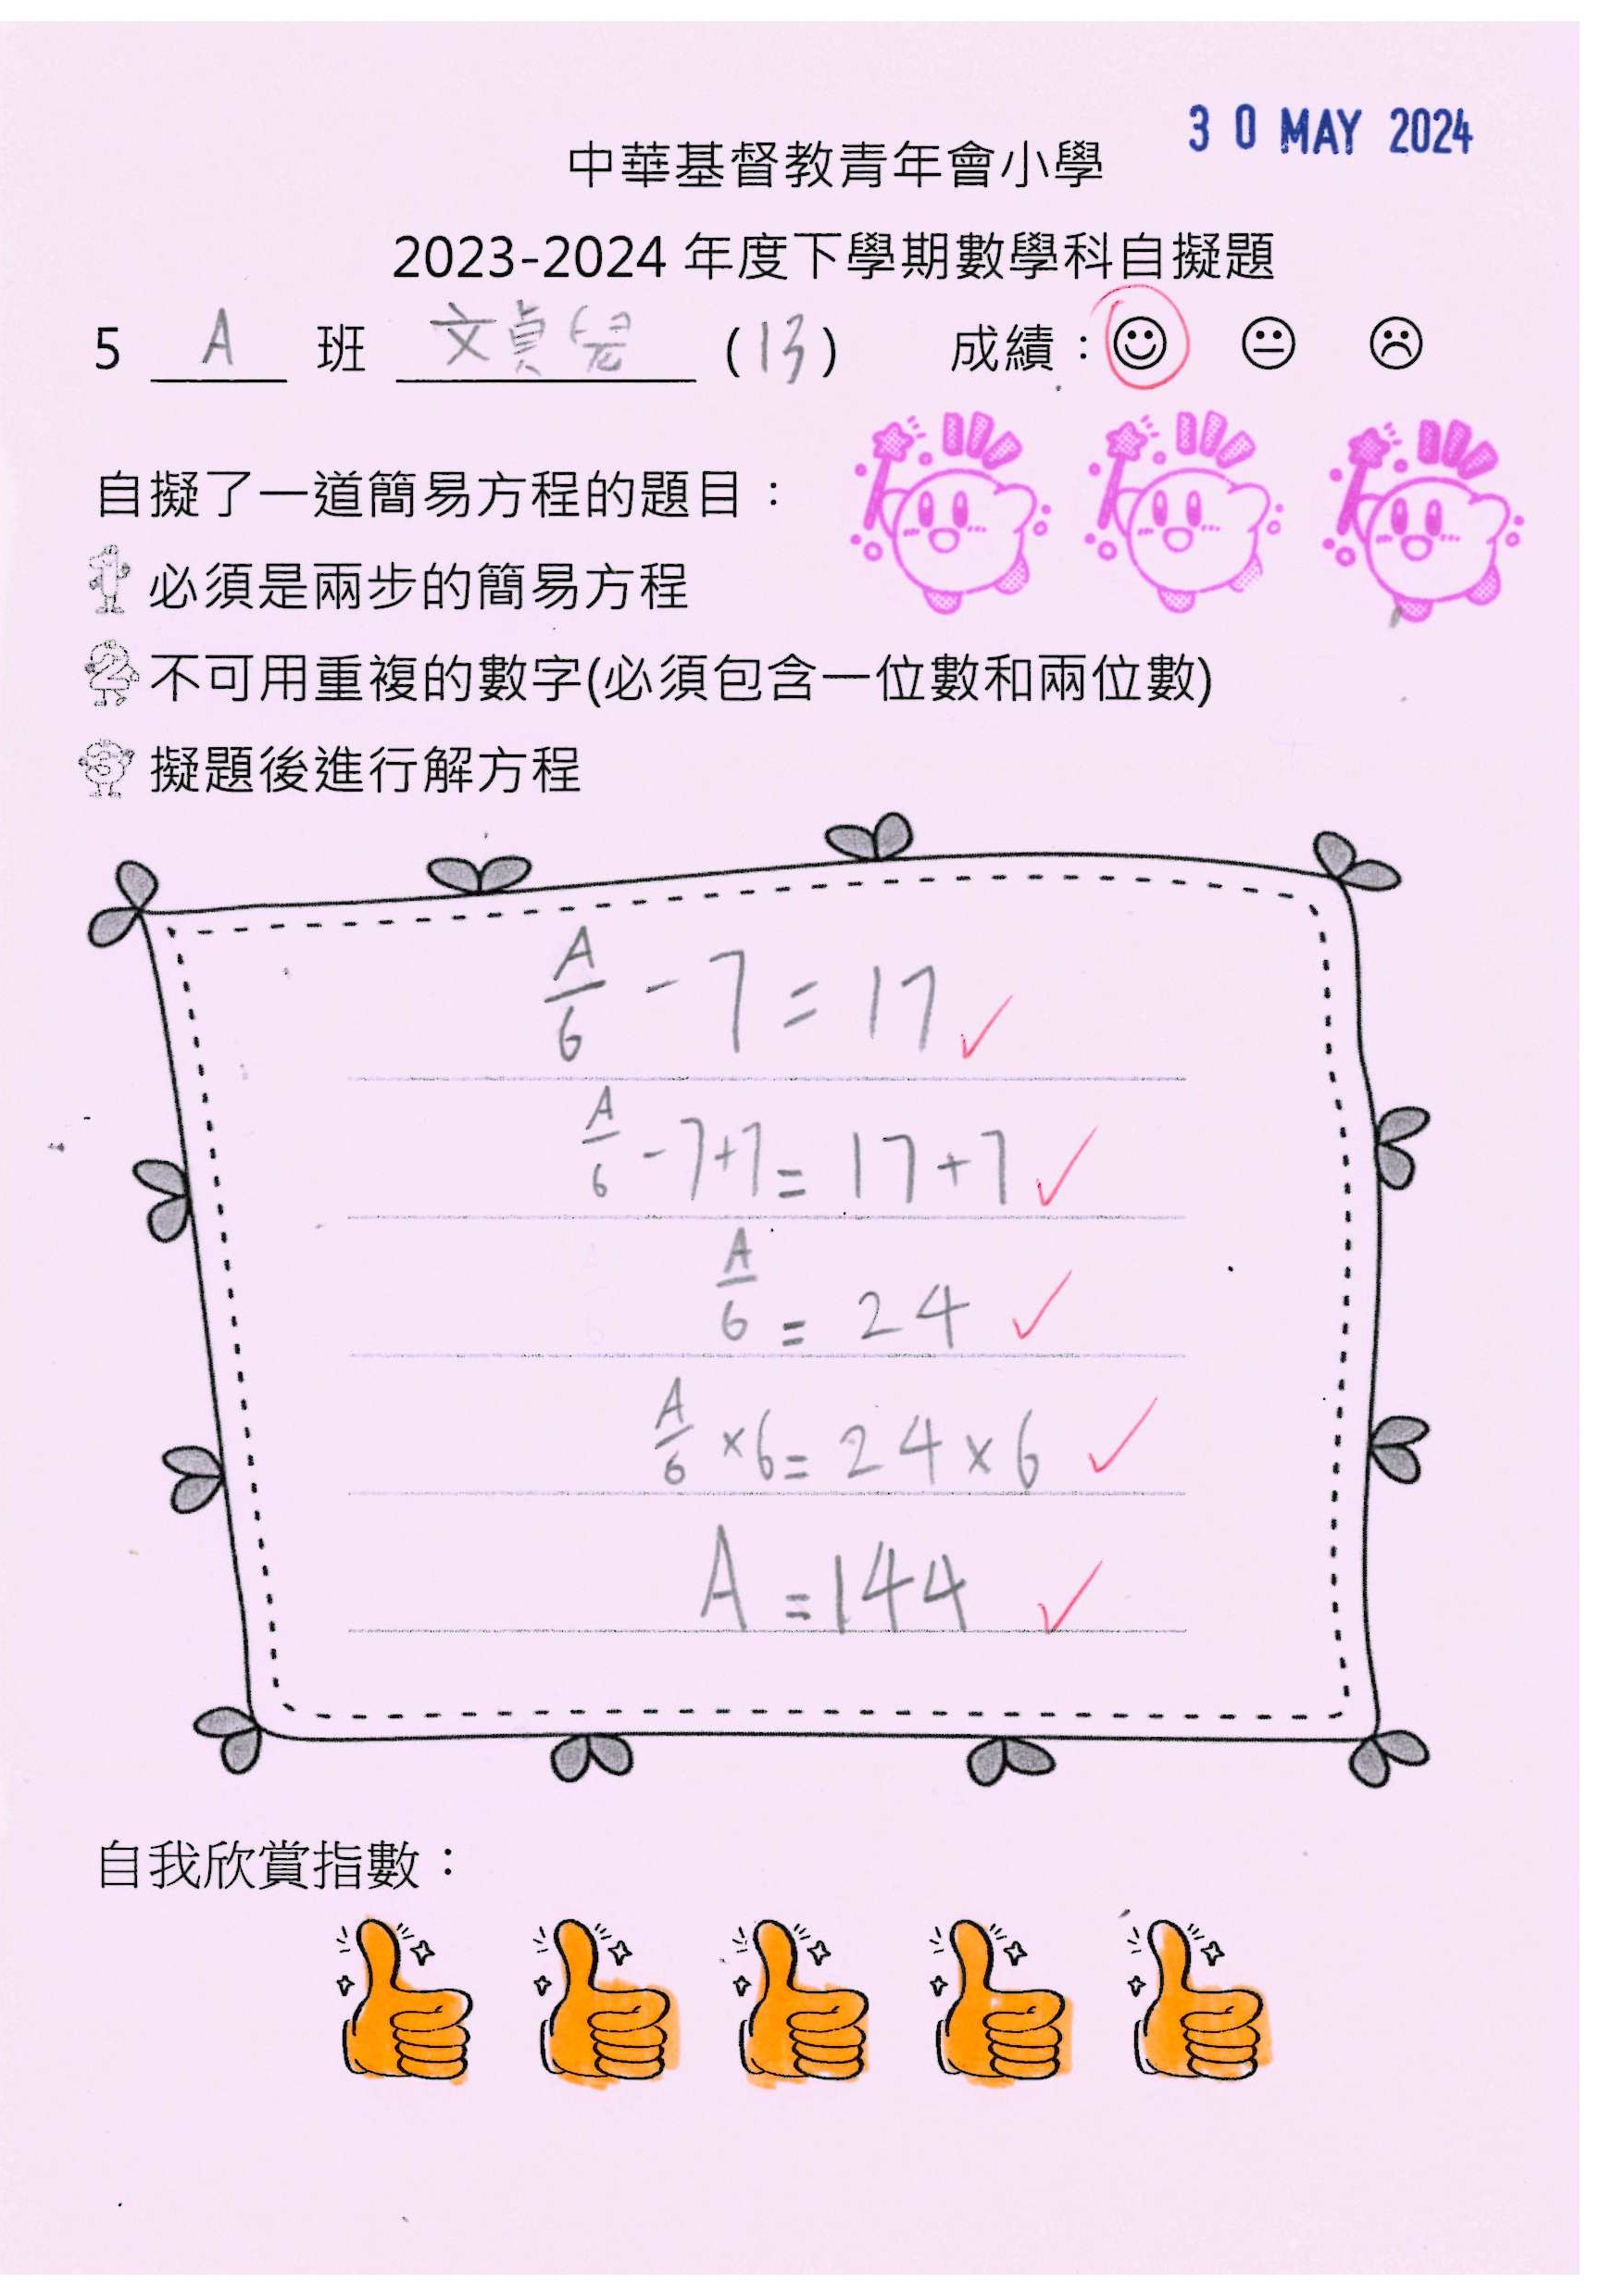 30 MAY 2024
中華基督教青年會小學
2023-2024 年度下學期數學科自擬題
5 A 班 文貞 (13) 成績：
自擬了一道簡易方程的題目：
必須是兩步的簡易方程
不可用重複的數字(必須包含一位數和兩位數)
擬題後進行解方程
A/6 - 7 = 17
A/6 - 7+7 = 17+7
A/6 = 24
A/6 ×6 = 24×6
A = 144
自我欣賞指數：